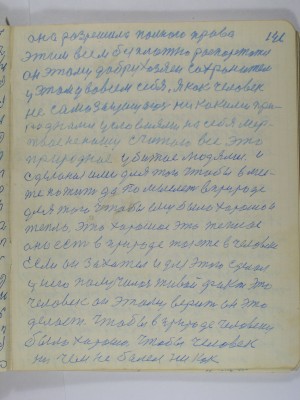 она разрешила полного права
этим всем бесплатно распоряжаться
он этому добру хозяин сохранитель
у этому во всем себя, я как человек
не самозащищающ никакими при-
родными условиями на себя мер-
твое не ношу считаю все это
природное убитое людями. и
сделано ими для того чтобы в
для того чтобы ему было хорошо и
тепло, это хорошее это теплое
оно есть в природе тоже в человеке
если он захотел и для этого сделал
у него получился живой факт это
человек он этому верит он это
делает. Чтобы в природе человеку
было хорошо чтобы человек
ни чем не болел ни как